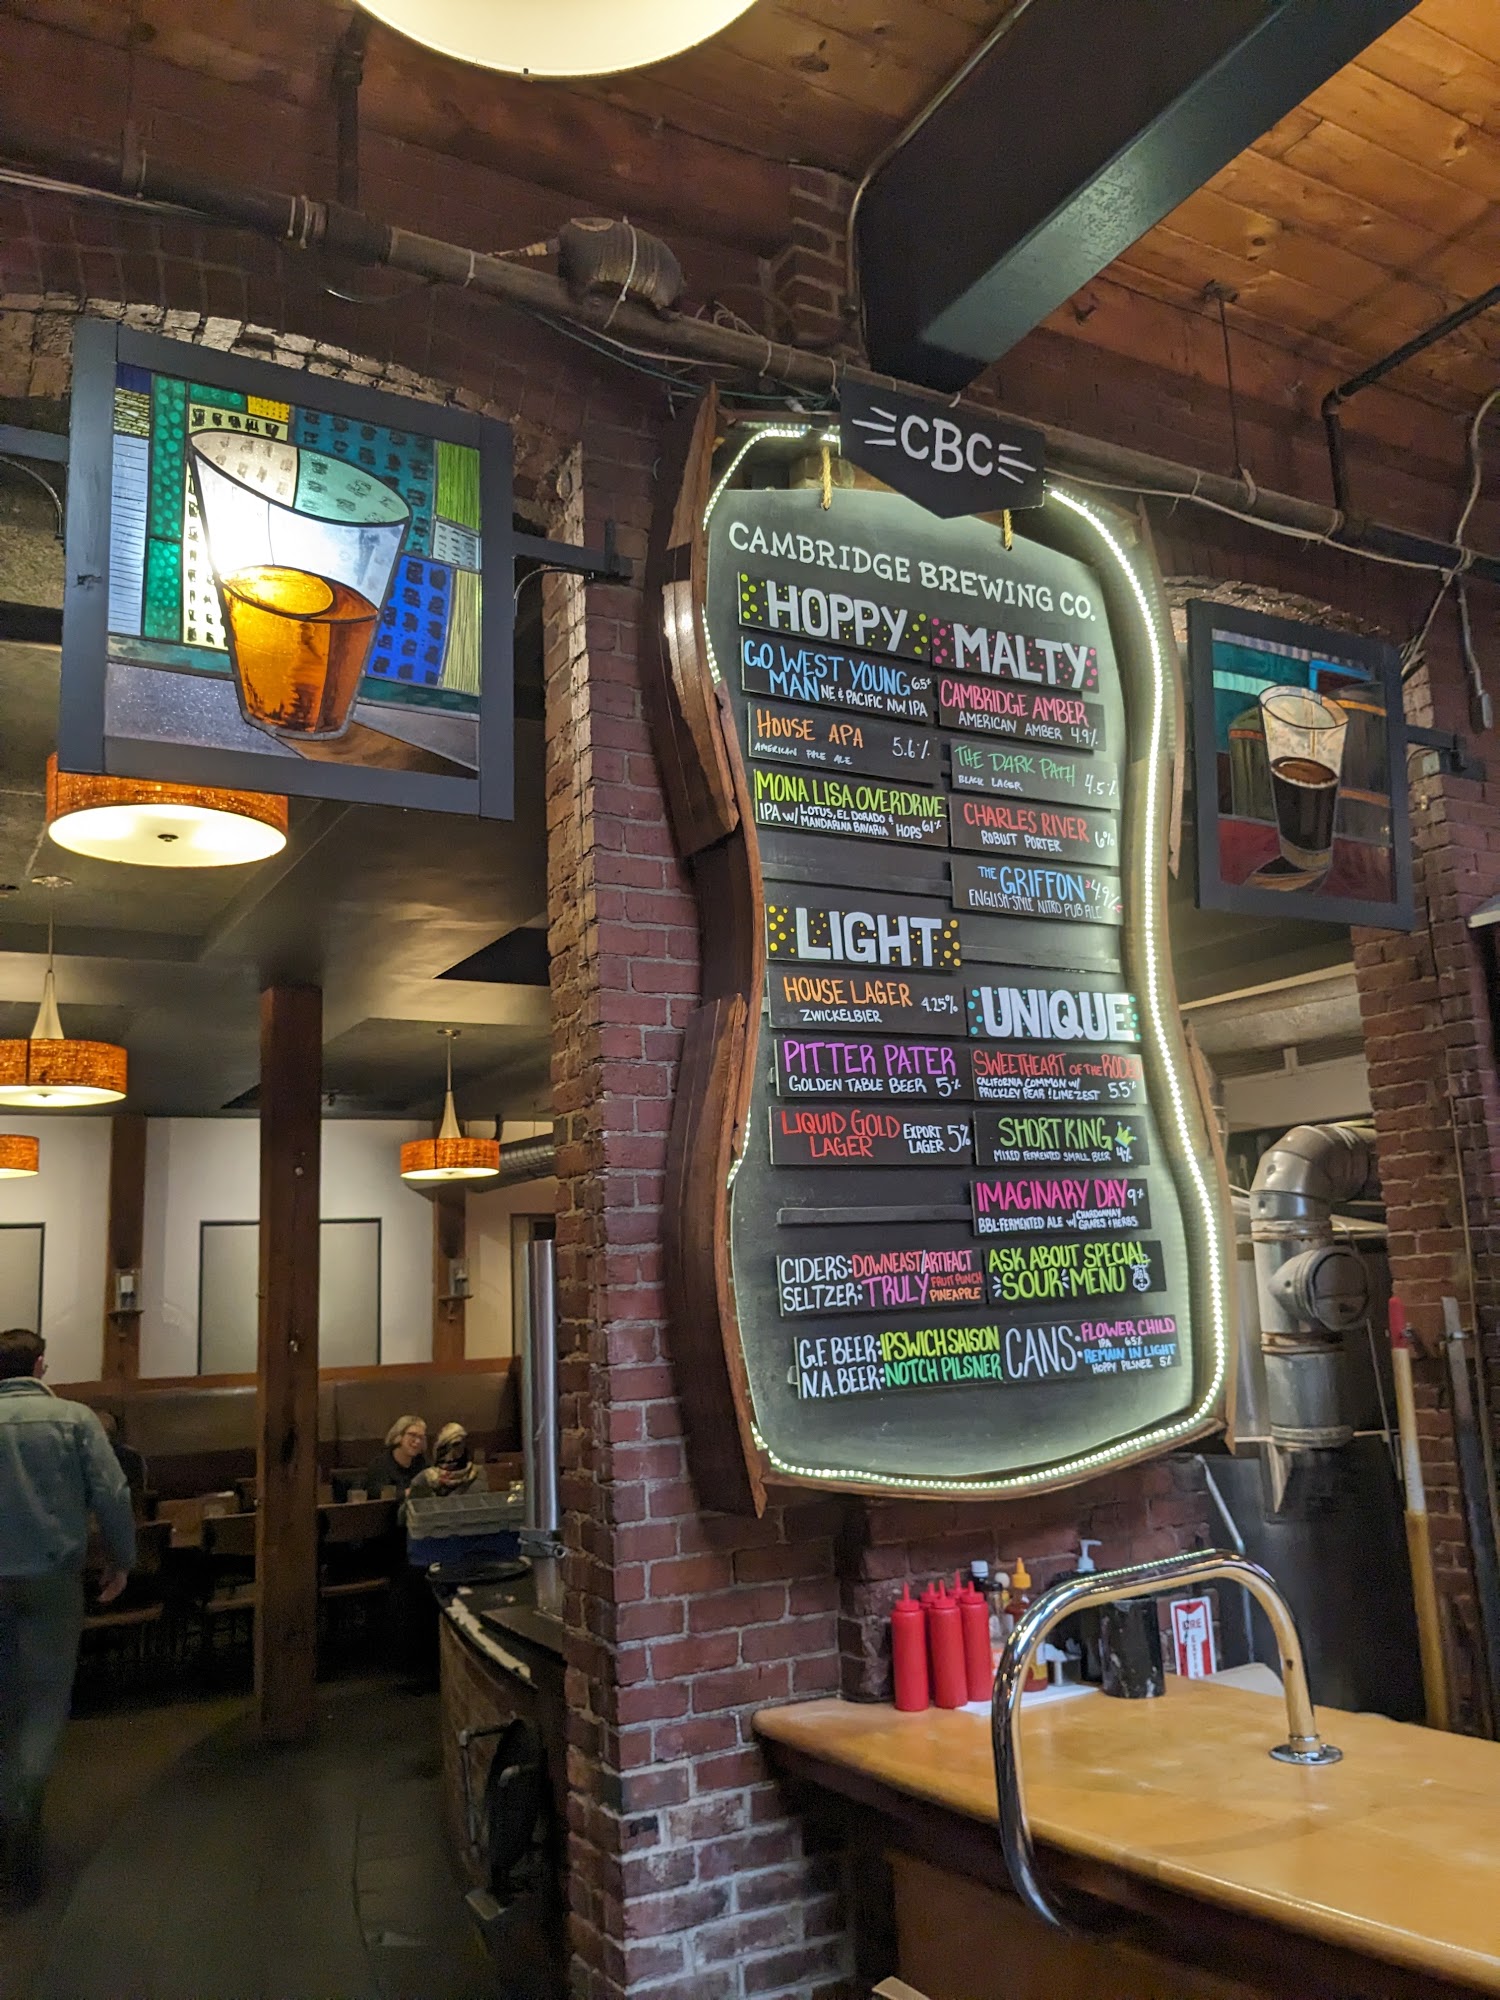 CBC
CAMBRIDGE BREWING CO.
HOPPY
GO WEST YOUNG
MAN NE & PACIFIC NW IPA 6.5%
HOUSE APA 5.6%
AMERICAN PALE ALE
MONA LISA OVERDRIVE
IPA w/ LOTUS, EL DORADO &
MANDARINA BAVARIA HOPS 6.1%
MALTY
CAMBRIDGE AMBER
AMERICAN AMBER 4.9%
THE DARK PATH
BLACK LAGER 4.5%
CHARLES RIVER
ROBUST PORTER 6%
THE GRIFFON 4.9%
ENGLISH-STYLE NITRO PUB ALE
LIGHT
HOUSE LAGER 4.25%
ZWICKELBIER
PITTER PATER
GOLDEN TABLE BEER 5%
LIQUID GOLD
LAGER EXPORT
LAGER 5%
UNIQUE
SWEETHEART OF THE RODEO
CALIFORNIA COMMON w/
PRICKLEY PEAR & LIME ZEST 5.5%
SHORT KING
MIXED FERMENTED SMALL BEER 4%
IMAGINARY DAY 9%
BBL-FERMENTED ALE w/ CHARDONNAY
GRAPES & HERBS
CIDERS: DOWNEAST/ARTIFACT
SELTZER: TRULY FRUIT PUNCH
PINEAPPLE
ASK ABOUT SPECIAL
SOUR MENU
G.F. BEER: IPSWICH SAISON
N.A. BEER: NOTCH PILSNER
CANS: FLOWER CHILD
IPA 6.5%
REMAIN IN LIGHT
HOPPY PILSNER 5%